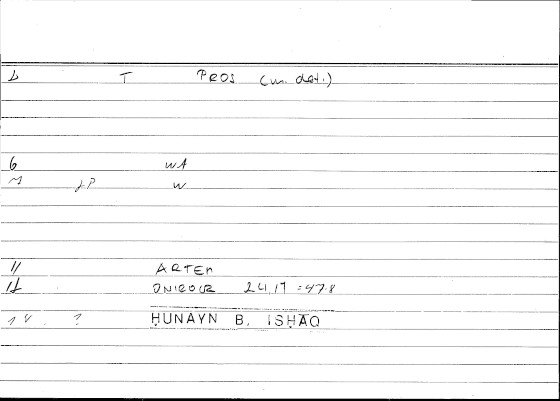 T PROS (m. dat.)
6 WA
M W
11 ARTEM
ONIROCR 24,17 = 47.8
14 ? ḤUNAYN B. ISḤĀQ